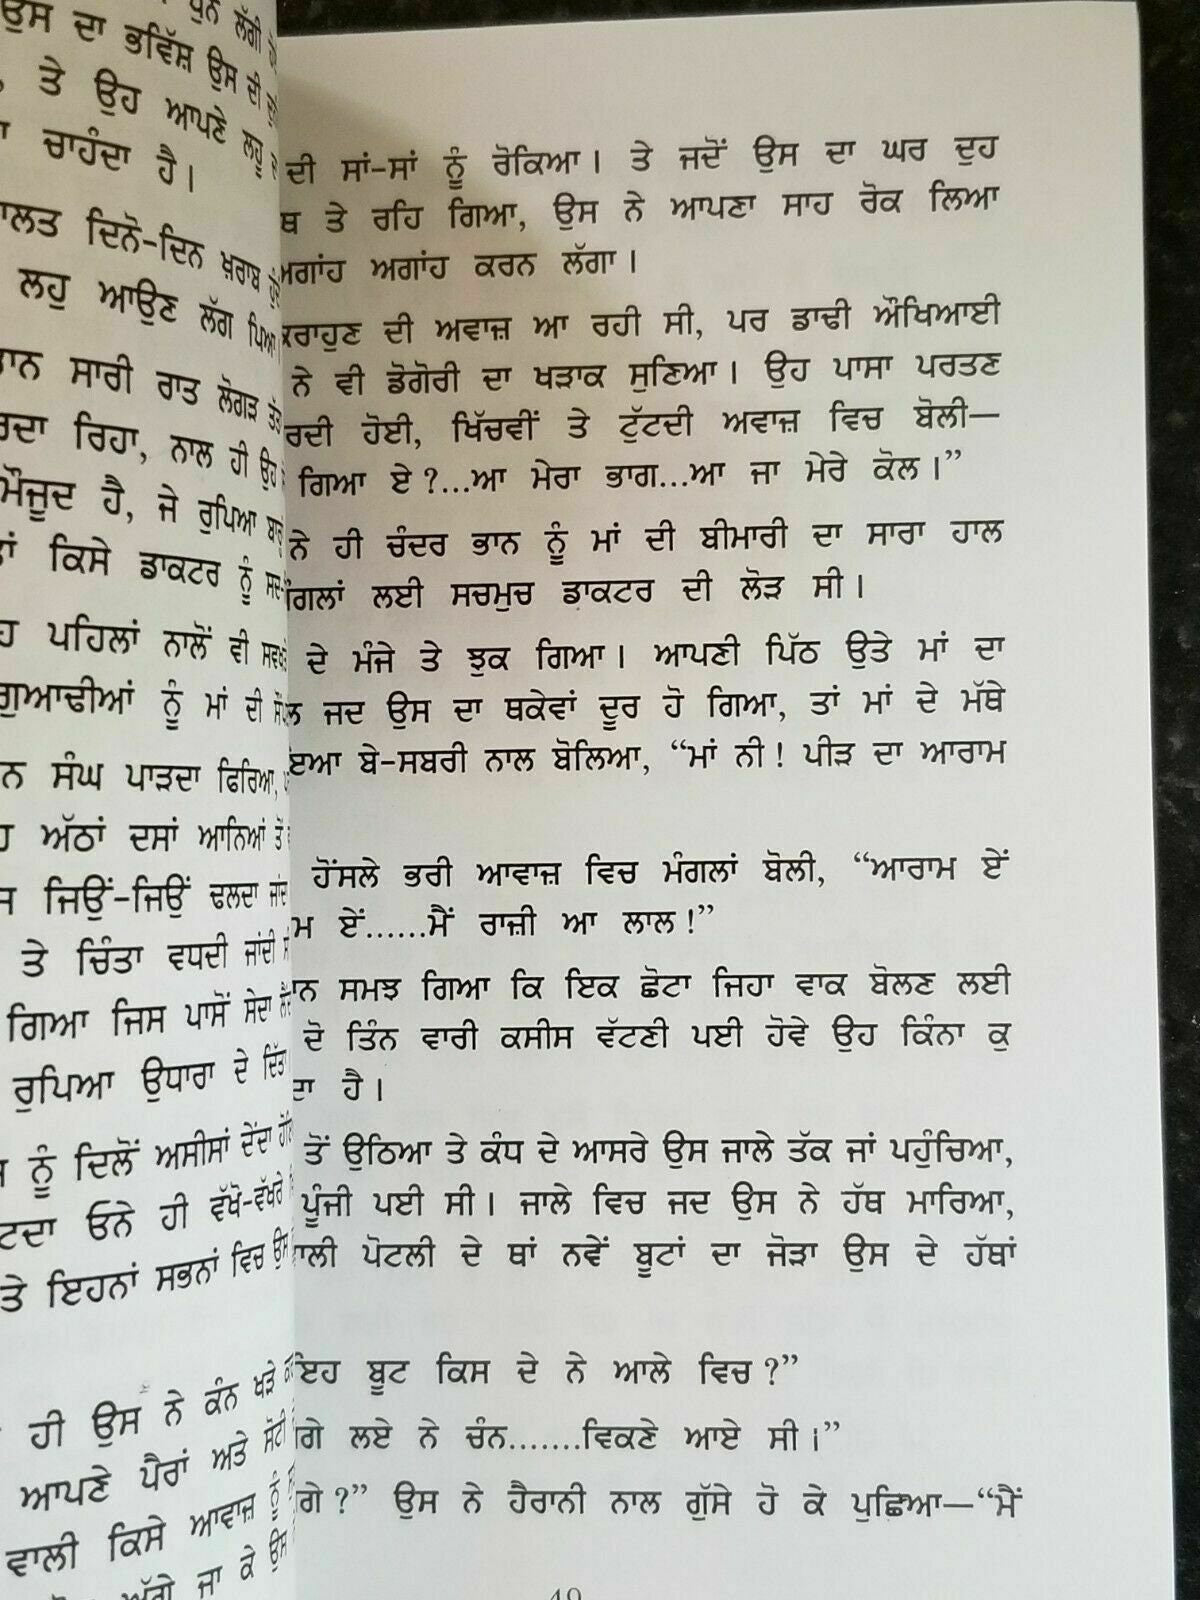 ਉਸ ਦਾ ਭਵਿੱਸ਼ ਉਸ ਦੀ
ਤੇ ਉਹ ਆਪਣੇ ਲਹੂ
ਚਾਹੰਦਾ ਹੈ।
ਦਿਨੋ-ਦਿਨ ਖ਼ਰਾਬ
ਲਹੂ ਆਉਣ ਲੱਗ ਪਿਆ
ਸਾਰੀ ਰਾਤ ਲੋਗੜ
ਰਿਹਾ, ਨਾਲ ਹੀ ਉਹ
ਮੌਜੂਦ ਹੈ, ਜੇ ਰੁਪਿਆ
ਕਿਸੇ ਡਾਕਟਰ ਨੂੰ
ਪਹਿਲਾਂ ਨਾਲੋਂ ਵੀ
ਗੁਆਢੀਆਂ ਨੂੰ ਮਾਂ ਦੀ
ਸੰਘ ਪਾੜਦਾ ਫਿਰਿਆ,
ਅੱਠਾਂ ਦਸਾਂ ਆਨਿਆਂ ਤੋਂ
ਜਿਉਂ-ਜਿਉਂ ਢਲਦਾ
ਤੇ ਚਿੰਤਾ ਵਧਦੀ ਜਾਂਦੀ
ਗਿਆ ਜਿਸ ਪਾਸੋਂ ਸੇਦਾ
ਰੁਪਿਆ ਉਧਾਰਾ ਦੇ ਦਿੱਤਾ
ਨੂੰ ਦਿਲੋਂ ਅਸੀਸਾਂ ਦੇਂਦਾ
ਓਨੇ ਹੀ ਵੱਖੋ-ਵੱਖਰੇ
ਤੇ ਇਹਨਾਂ ਸਭਨਾਂ ਵਿਚ ਉਸ
ਹੀ ਉਸ ਨੇ ਕੰਨ ਖੜੇ
ਆਪਣੇ ਪੈਰਾਂ ਅਤੇ ਸੋਟੀ
ਵਾਲੀ ਕਿਸੇ ਆਵਾਜ਼ ਨੂੰ
ਅੱਗੇ ਜਾ ਕੇ ਉਸ
ਦੀ ਸਾਂ-ਸਾਂ ਨੂੰ ਰੋਕਿਆ। ਤੇ ਜਦੋਂ ਉਸ ਦਾ ਘਰ ਦੁਹ
ਤੇ ਰਹਿ ਗਿਆ, ਉਸ ਨੇ ਆਪਣਾ ਸਾਹ ਰੋਕ ਲਿਆ
ਅਗਾਂਹ ਅਗਾਂਹ ਕਰਨ ਲੱਗਾ।
ਕਰਾਹੁਣ ਦੀ ਅਵਾਜ਼ ਆ ਰਹੀ ਸੀ, ਪਰ ਡਾਢੀ ਔਖਿਆਈ
ਨੇ ਵੀ ਡੰਗੋਰੀ ਦਾ ਖੜਾਕ ਸੁਣਿਆ। ਉਹ ਪਾਸਾ ਪਰਤਣ
ਹੋਈ, ਖਿੱਚਵੀਂ ਤੇ ਟੁੱਟਦੀ ਅਵਾਜ਼ ਵਿਚ ਬੋਲੀ—
ਗਿਆ ਏ?...ਆ ਮੇਰਾ ਭਾਗ...ਆ ਜਾ ਮੇਰੇ ਕੋਲ।”
ਨੇ ਹੀ ਚੰਦਰ ਭਾਨ ਨੂੰ ਮਾਂ ਦੀ ਬੀਮਾਰੀ ਦਾ ਸਾਰਾ ਹਾਲ
ਲਈ ਸਚਮੁਚ ਡਾਕਟਰ ਦੀ ਲੋੜ ਸੀ।
ਦੇ ਮੰਜੇ ਤੇ ਝੁਕ ਗਿਆ। ਆਪਣੀ ਪਿੱਠ ਉਤੇ ਮਾਂ ਦਾ
ਜਦ ਉਸ ਦਾ ਥਕੇਵਾਂ ਦੂਰ ਹੋ ਗਿਆ, ਤਾਂ ਮਾਂ ਦੇ ਮੱਥੇ
ਬੇ-ਸਬਰੀ ਨਾਲ ਬੋਲਿਆ, “ਮਾਂ ਨੀ! ਪੀੜ ਦਾ ਆਰਾਮ
ਹੌਂਸਲੇ ਭਰੀ ਆਵਾਜ਼ ਵਿਚ ਮੰਗਲਾਂ ਬੋਲੀ, “ਆਰਾਮ ਏਂ
ਏਂ......ਮੈਂ ਰਾਜ਼ੀ ਆ ਲਾਲ!”
ਸਮਝ ਗਿਆ ਕਿ ਇਕ ਛੋਟਾ ਜਿਹਾ ਵਾਕ ਬੋਲਣ ਲਈ
ਦੋ ਤਿੰਨ ਵਾਰੀ ਕਸੀਸ ਵੱਟਣੀ ਪਈ ਹੋਵੇ ਉਹ ਕਿੰਨਾ ਕੁ
ਹੈ।
ਤੋਂ ਉਠਿਆ ਤੇ ਕੰਧ ਦੇ ਆਸਰੇ ਉਸ ਜਾਲੇ ਤੱਕ ਜਾਂ ਪਹੁੰਚਿਆ,
ਪੂੰਜੀ ਪਈ ਸੀ। ਜਾਲੇ ਵਿਚ ਜਦ ਉਸ ਨੇ ਹੱਥ ਮਾਰਿਆ,
ਪੋਟਲੀ ਦੇ ਥਾਂ ਨਵੇਂ ਬੂਟਾਂ ਦਾ ਜੋੜਾ ਉਸ ਦੇ ਹੱਥਾਂ
ਇਹ ਬੂਟ ਕਿਸ ਦੇ ਨੇ ਆਲੇ ਵਿਚ?”
ਲਏ ਨੇ ਚੰਨ.......ਵਿਕਣੇ ਆਏ ਸੀ।”
ਉਸ ਨੇ ਹੈਰਾਨੀ ਨਾਲ ਗੁੱਸੇ ਹੋ ਕੇ ਪੁਛਿਆ—“ਮੈਂ